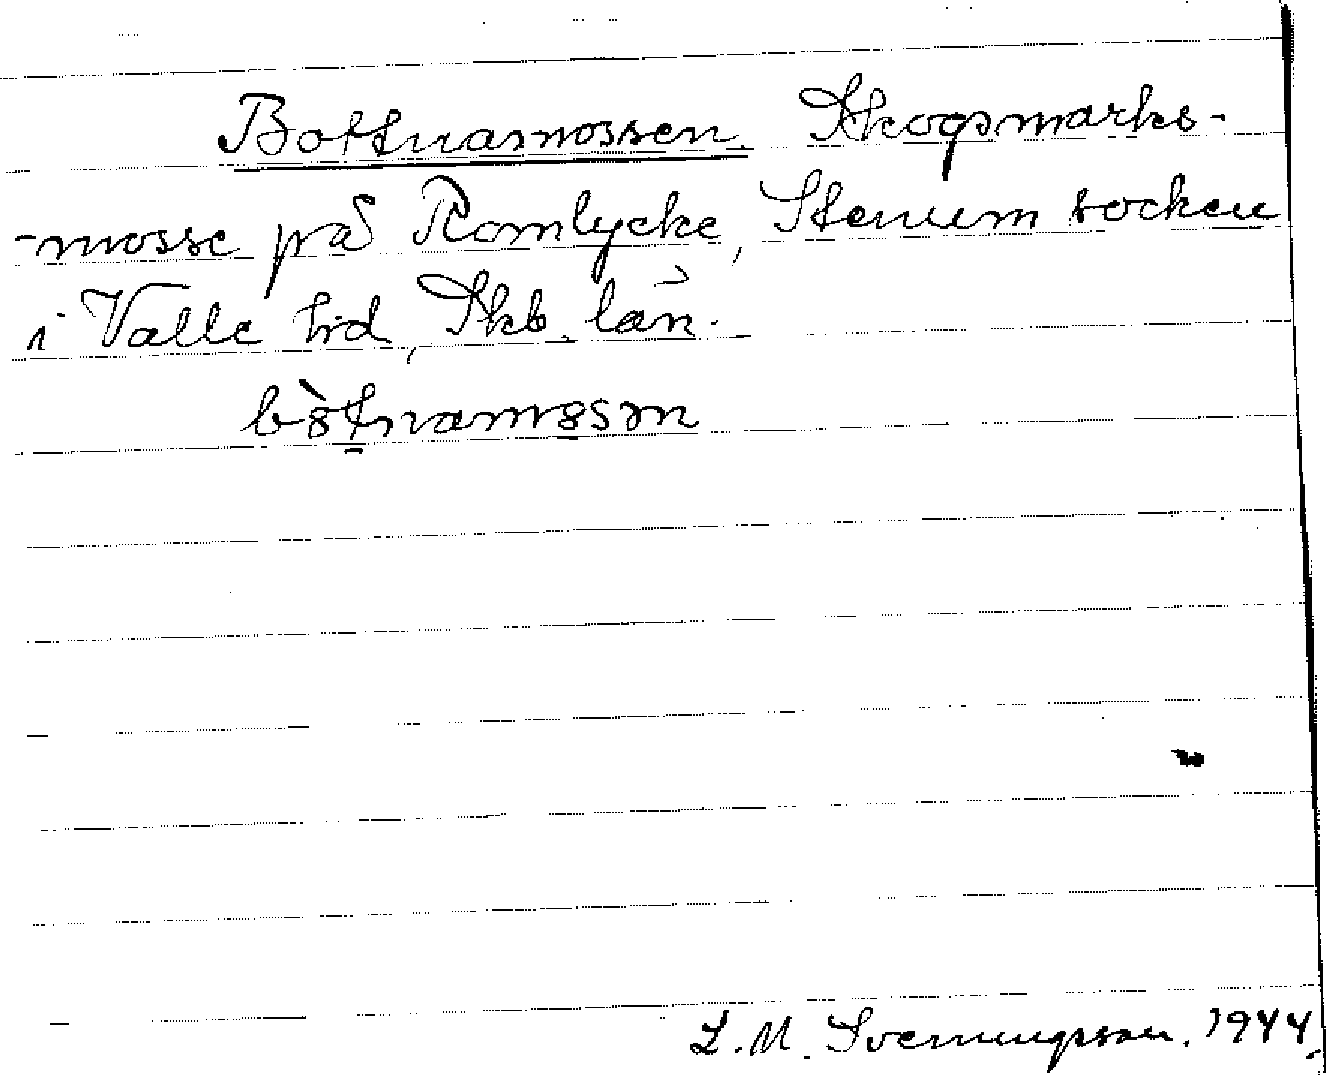 Bottnasmossen. Skogsmarks-
-mosse på Romlycke, Stenum socken
i Valle hd, Skb. län.
L. M. Svenungsson. 1944.